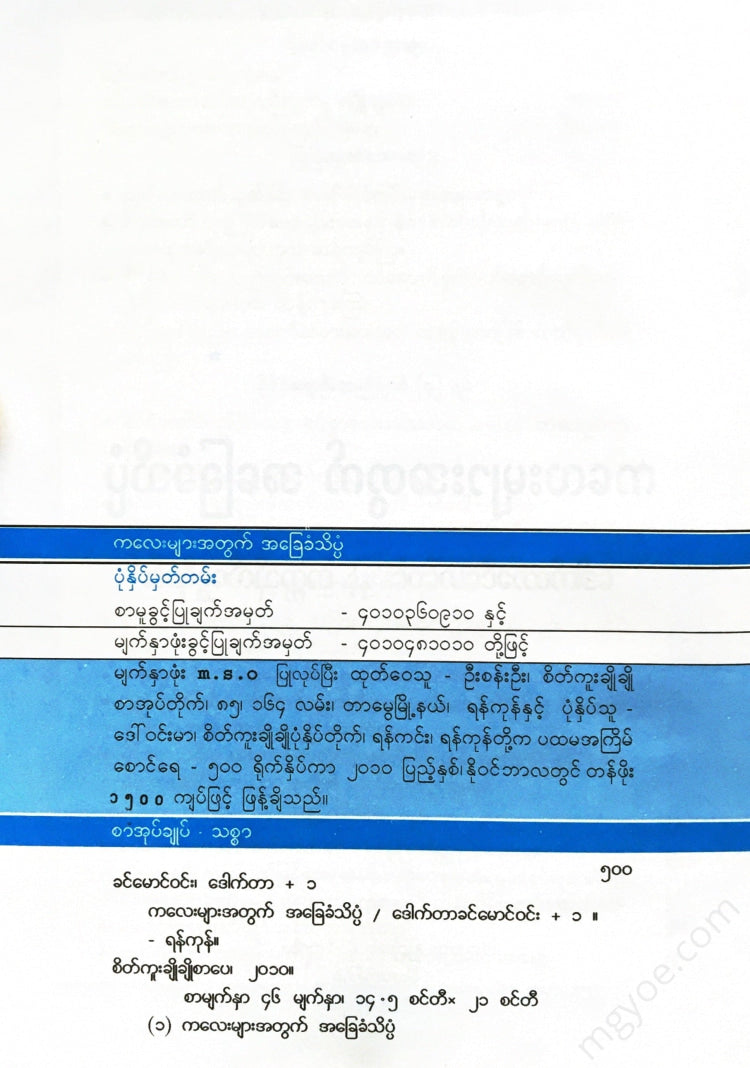 ကလေးများအတွက် အခြေခံသိပ္ပံ
ပုံနှိပ်မှတ်တမ်း
စာမူခွင့်ပြုချက်အမှတ် - ၄၀၁၀၃၆၀၉၁၀ နှင့်
မျက်နှာဖုံးခွင့်ပြုချက်အမှတ် - ၄၀၁၀၄၈၁၀၁၀ တို့ဖြင့်
မျက်နှာဖုံး m.s.o ပြုလုပ်ပြီး ထုတ်ဝေသူ - ဦးစန်းဦး၊ စိတ်ကူးချိုချို
စာအုပ်တိုက်၊ ၈၅၊ ၁၆၄ လမ်း၊ တာမွေမြို့နယ်၊ ရန်ကုန်နှင့် ပုံနှိပ်သူ -
ဒေါ်ဝင်းမာ၊ စိတ်ကူးချိုချိုပုံနှိပ်တိုက်၊ ရန်ကင်း၊ ရန်ကုန်တို့က ပထမအကြိမ်
စောင်ရေ - ၅၀၀ ရိုက်နှိပ်ကာ ၂၀၁၀ ပြည့်နှစ်၊ နိုဝင်ဘာလတွင် တန်ဖိုး
၁၅၀၀ ကျပ်ဖြင့် ဖြန့်ချိသည်။
စာအုပ်ချုပ် - သစ္စာ
၅၀၀
ခင်မောင်ဝင်း၊ ဒေါက်တာ + ၁
ကလေးများအတွက် အခြေခံသိပ္ပံ / ဒေါက်တာခင်မောင်ဝင်း + ၁ ။
- ရန်ကုန်။
စိတ်ကူးချိုချိုစာပေ၊ ၂၀၁၀။
စာမျက်နှာ ၄၆ မျက်နှာ၊ ၁၄.၅ စင်တီ× ၂၁ စင်တီ
(၁) ကလေးများအတွက် အခြေခံသိပ္ပံ
mgyoe.com